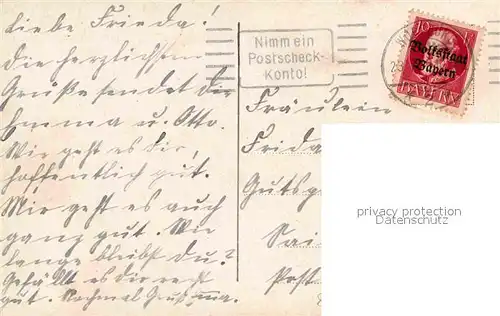 Liebe Frieda!
Die herzlichsten
Grüße sendet dir
Emma u. Otto.
Wie geht es dir,
hoffentlich gut.
Mir geht es auch
ganz gut. Wie
lange bleibst du?
Gefällt es dir recht
gut. Nochmal Gruß
Nimm ein
Postscheck-
Konto!
10
Volksstaat
Bayern
BAYERN
Fräulein
Frida
Gutsg
Sai
Post
privacy protection
Datenschutz